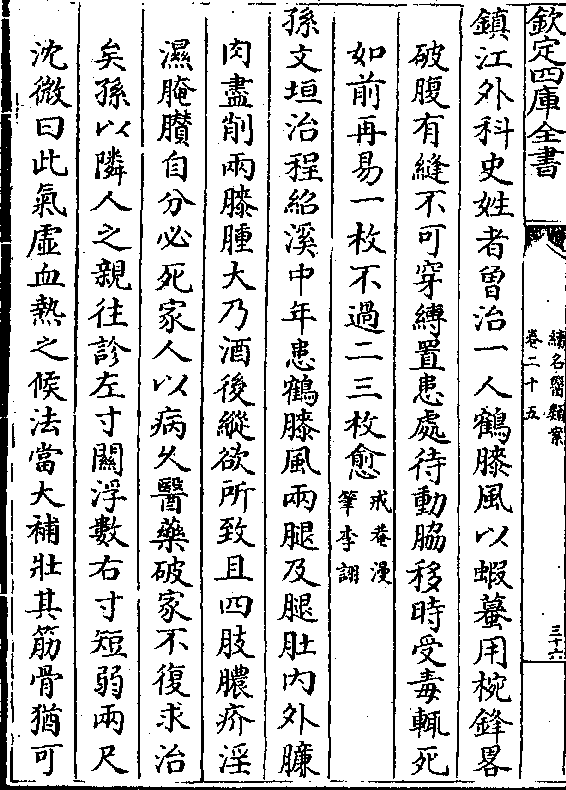 欽定四庫全書
續名醫類案
卷二十五
三十六
鎮江外科史姓者曽治一人鶴膝風以蝦蟇用椀鋒畧
破腹有縫不可穿縛置患處待動脇移時受毒輒死
如前再易一枚不過二三枚愈
戒菴漫
筆李詡
孫文垣治程紹溪中年患鶴膝風兩腿及腿肚内外臁
肉盡削兩膝腫大乃酒後縱欲所致且四肢膿疥淫
濕腌臢自分必死家人以病久醫藥破家不復求治
矣孫以隣人之親往診左寸關浮數右寸短弱兩尺
沈微曰此氣虛血熱之候法當大補壯其筋骨猶可